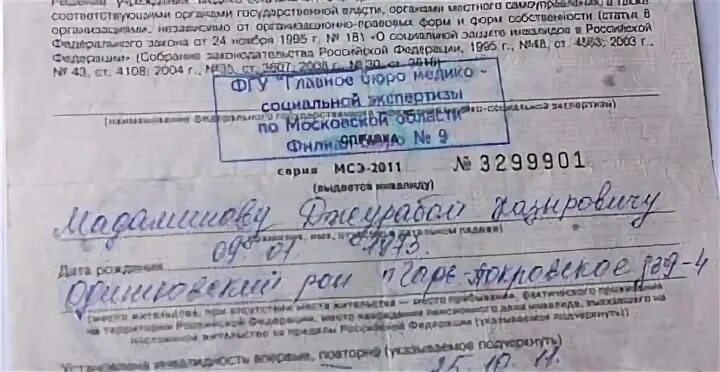 соответствующими органами государственной власти, органами местного самоуправления, а также
организациями, независимо от организационно-правовых форм и форм собственности (статья 8
Федерального закона от 24 ноября 1995 г. № 181 «О социальной защите инвалидов в Российской
Федерации» (Собрание законодательства Российской Федерации, 1995 г., №48, ст. 4563; 2003 г.,
№ 43, ст. 4108; 2004 г.,
ФГУ "Главное бюро медико-
социальной экспертизы
по Московской области"
Филиал № 9
СПРАВКА
серия МСЭ-2011 № 3299901
(выдается инвалиду)
Дата рождения 09 01 1973
Одинцовский
(место жительства, при отсутствии места жительства – место пребывания, фактического проживания
на территории Российской Федерации, место нахождения пенсионного дела инвалида, выехавшего на
постоянное жительство за пределы Российской Федерации (указываемое подчеркнуть))
Установлена инвалидность впервые, повторно (указываемое подчеркнуть)
25.10.11.